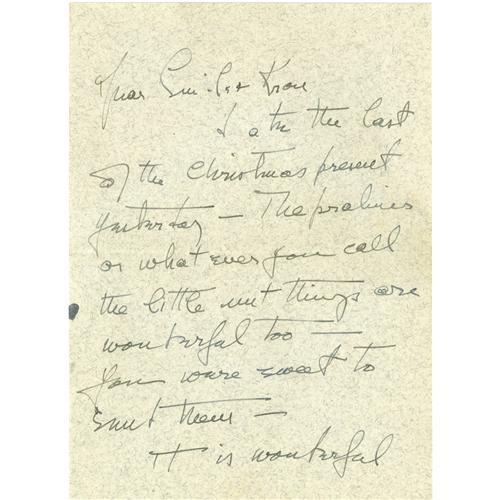 Dear Emily & Kron
I ate the last
of the Christmas present
yesterday — The pralines
or what ever you call
the little nut things are
wonderful too —
you were sweet to
send them —
It is wonderful